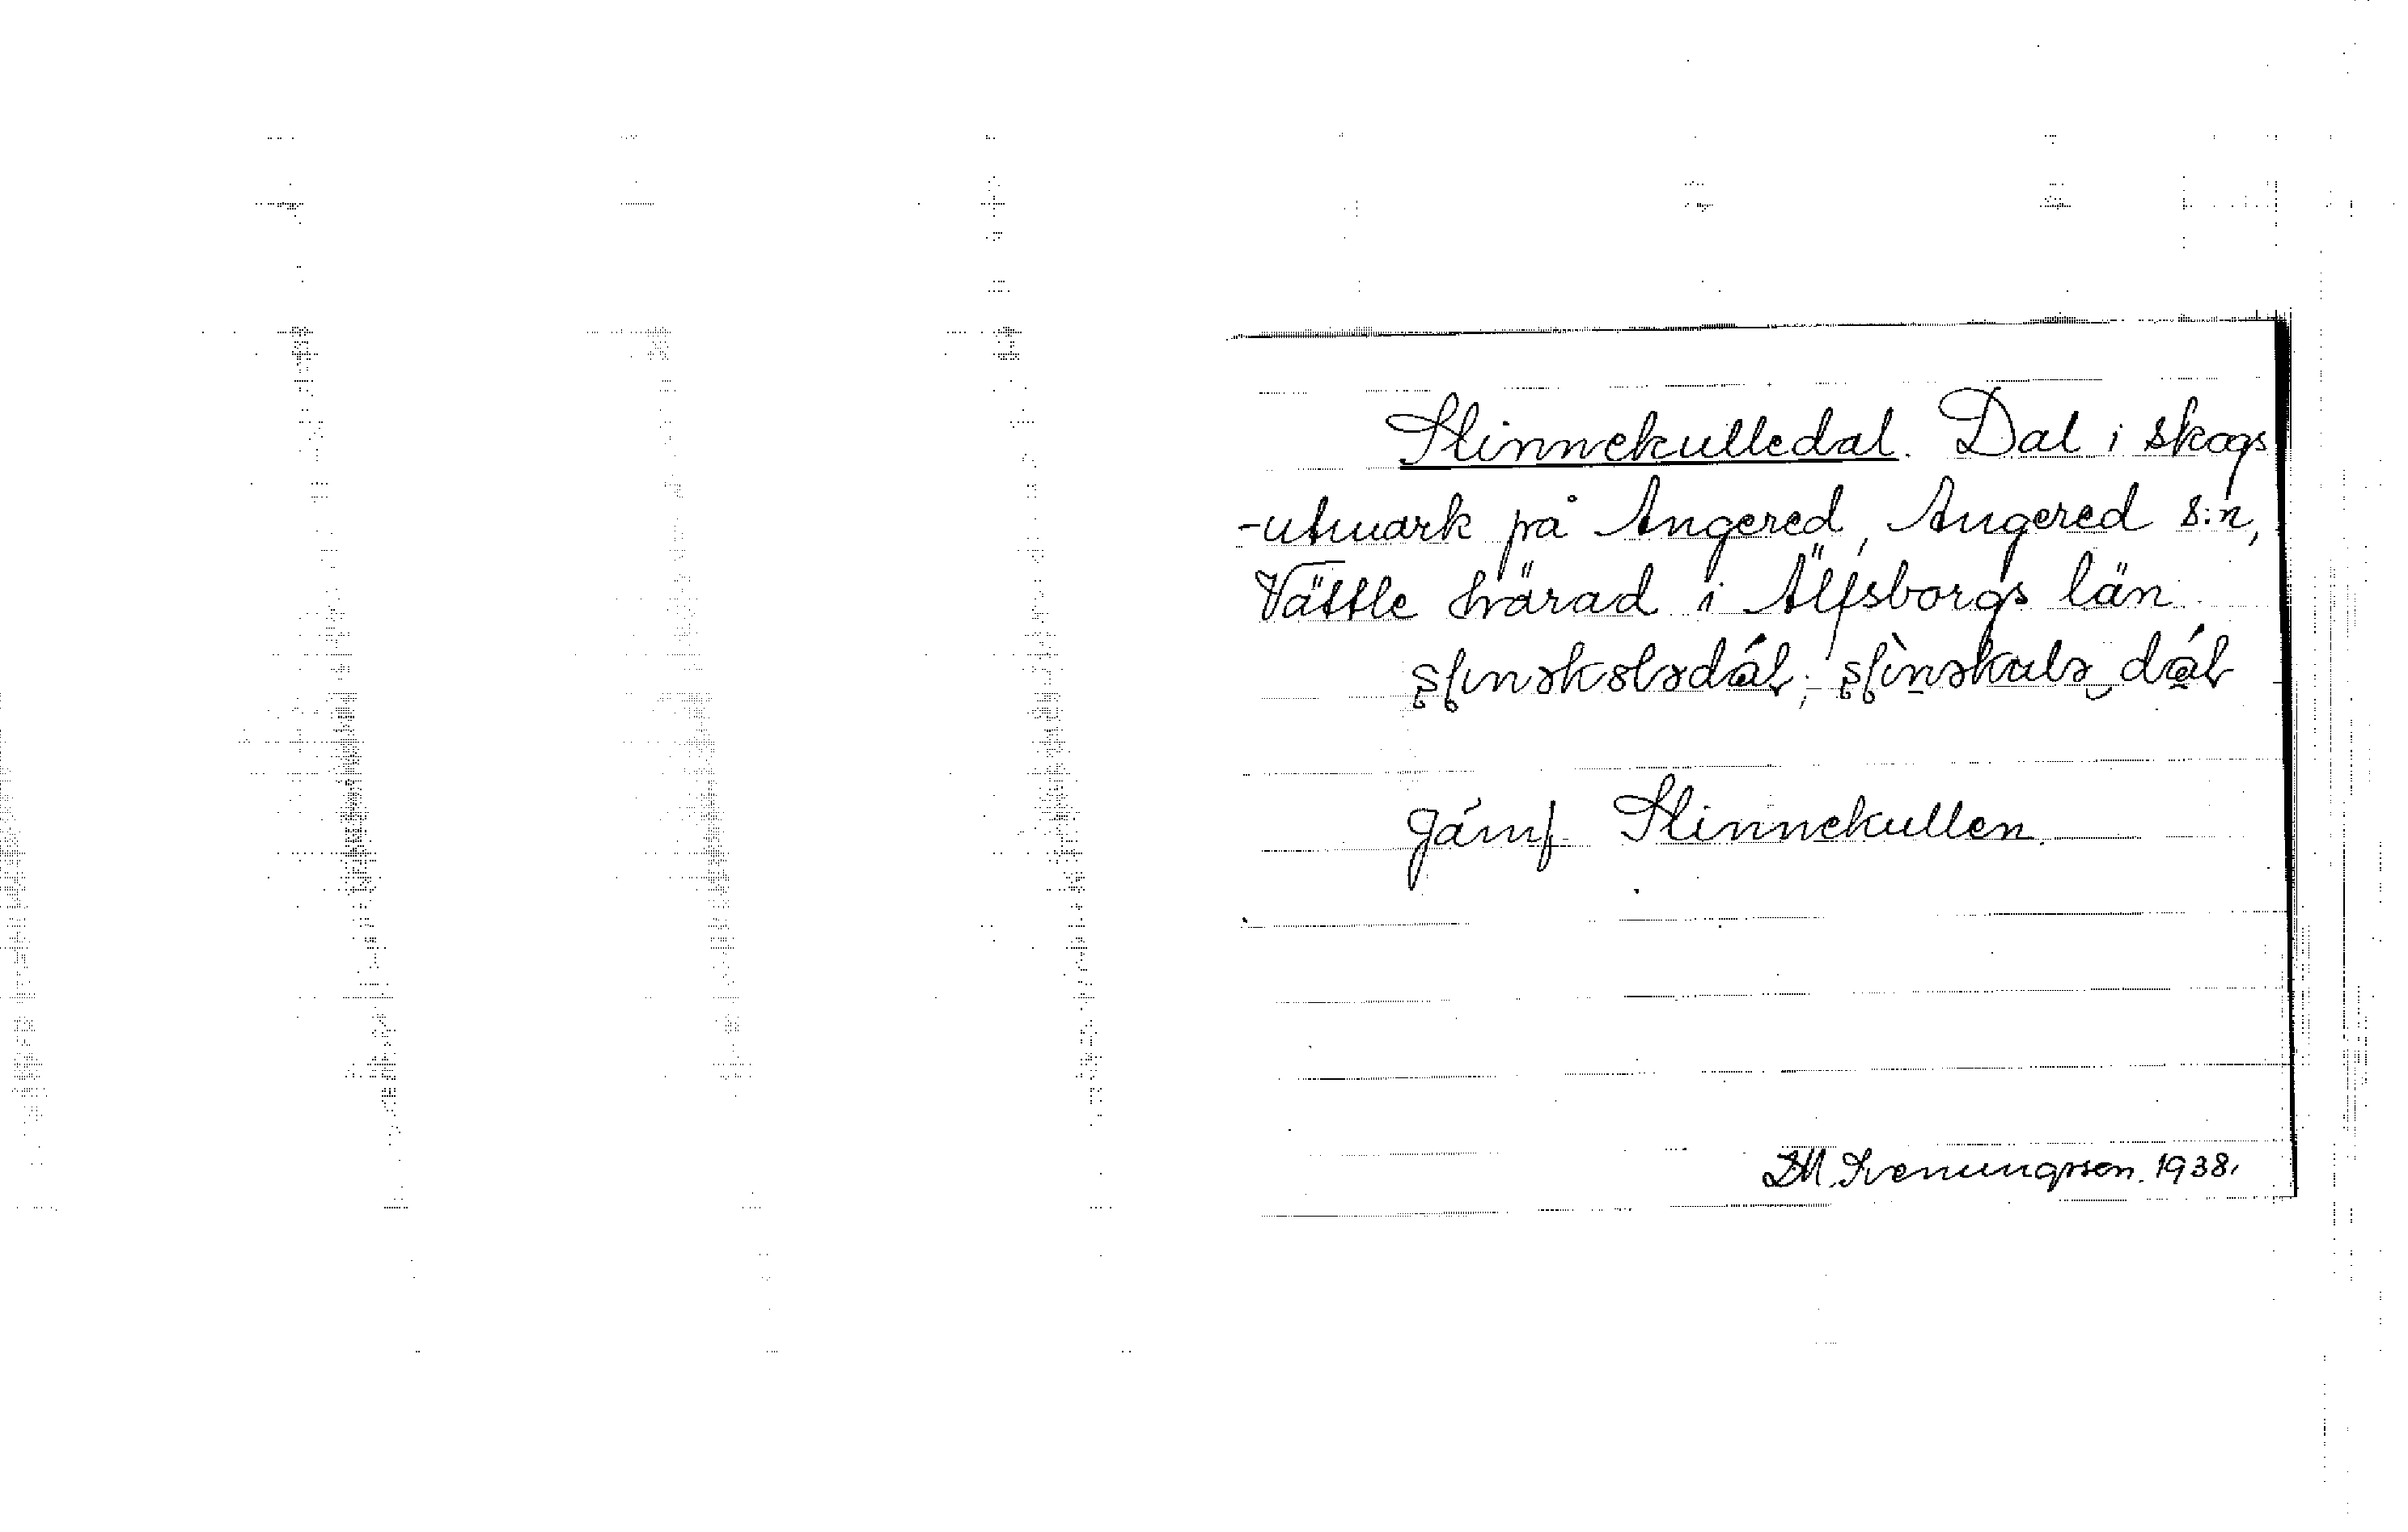 Slinnekulledal. Dal i skogs
-utmark på Angered, Angered s:n,
Vättle härad i Älfsborgs län.
Jämf Slinnekullen.
1938.